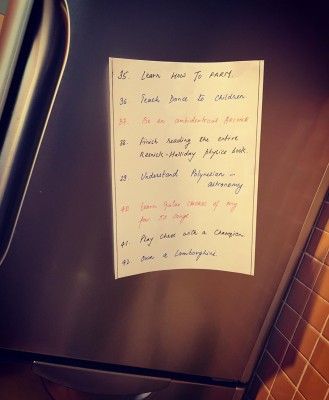 35. Learn How To PARTY.
36. Teach Dance to children
37. Be an ambidextrous Archer
38. Finish reading the entire
Resnick-Halliday physics book.
39. Understand Polynesian
astronomy
40. Learn Guitar chords of my
fav 50 songs
41. Play chess with a Champion
42. Own a Lamborghini.